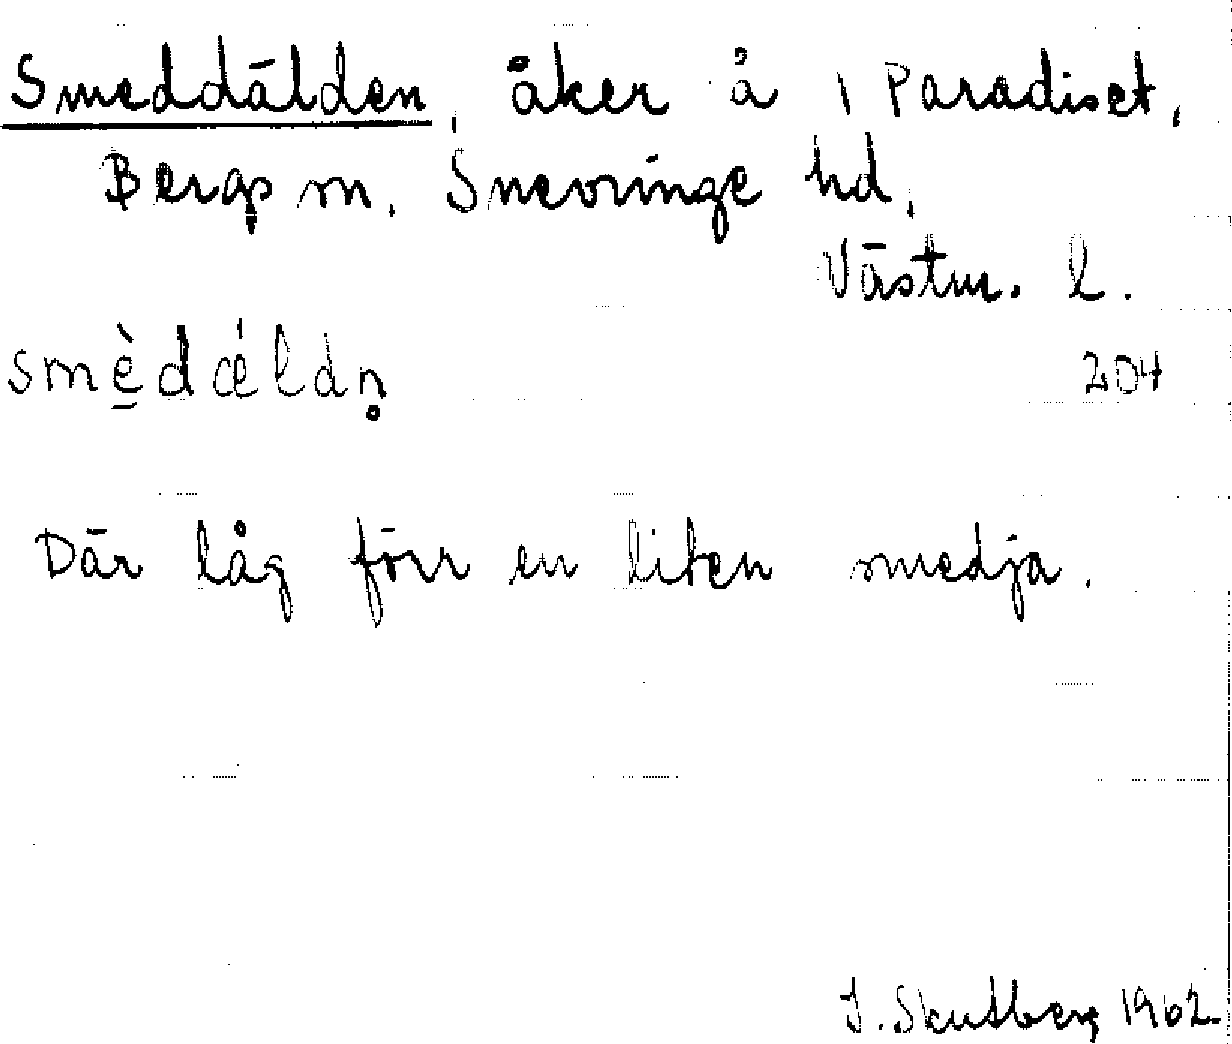 Smeddälden, åker å 1 Paradiset,
Bergs sn, Snevringe hd,
Västm. l.
smèdǽldn̥
204
Där låg förr en liten smedja.
J. Skutberg 1962